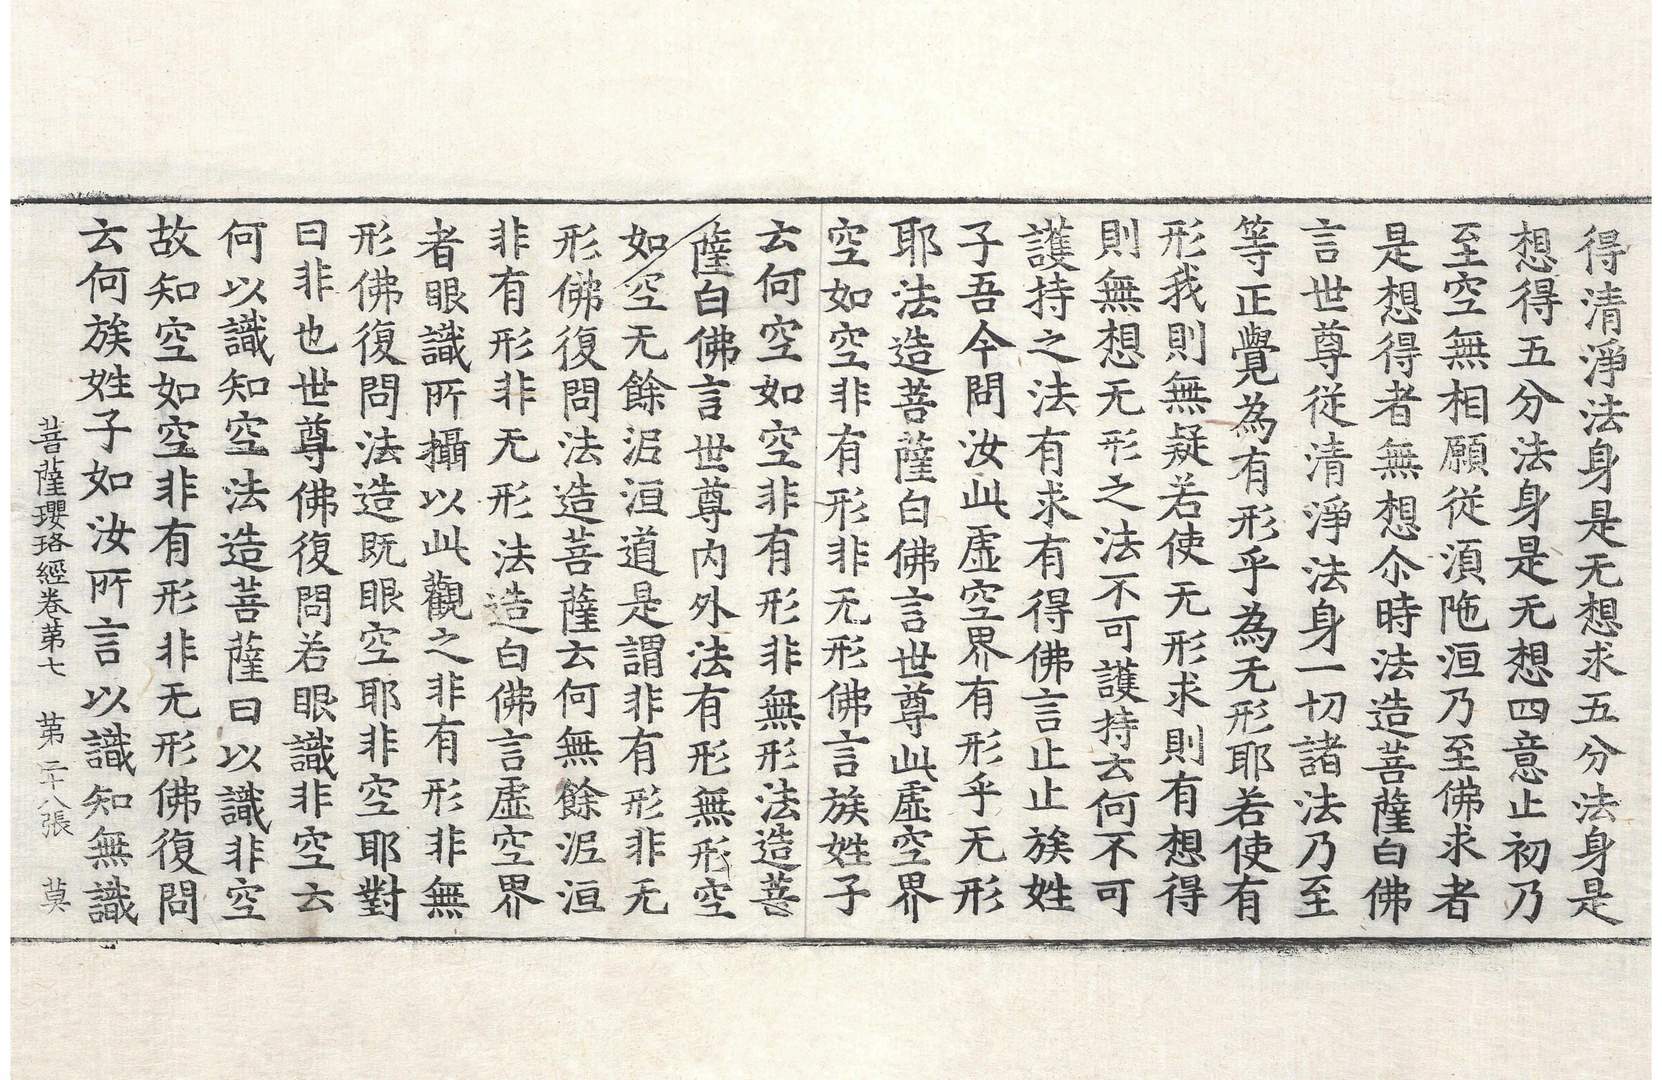 得清淨法身是无想求五分法身是
想得五分法身是无想四意止初乃
至空無相願従湏陁洹乃至佛求者
是想得者無想尒時法造菩薩白佛
言世尊従清淨法身一切諸法乃至
等正覺為有形乎為无形耶若使有
形我則無疑若使无形求則有想得
則無想无形之法不可護持云何不可
護持之法有求有得佛言止止族姓
子吾今問汝此虛空界有形乎无形
耶法造菩薩白佛言世尊此虛空界
空如空非有形非无形佛言族姓子
云何空如空非有形非無形法造菩
薩白佛言世尊内外法有形無形空
如空无餘泥洹道是謂非有形非无
形佛復問法造菩薩云何無餘泥洹
非有形非无形法造白佛言虛空界
者眼識所攝以此觀之非有形非無
形佛復問法造既眼空耶非空耶對
曰非也世尊佛復問若眼識非空云
何以識知空法造菩薩曰以識非空
故知空如空非有形非无形佛復問
云何族姓子如汝所言以識知無識
菩薩瓔珞經卷第七 第二十八張 莫